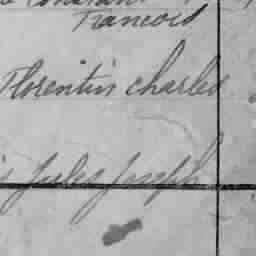 Constant
francois
Florentin charles
Jules Joseph